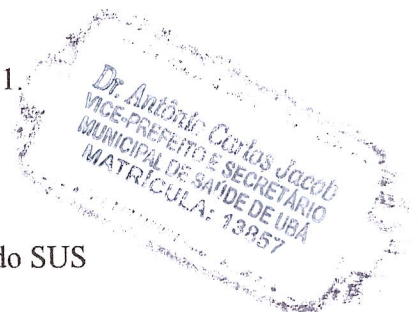 1.
Dr. Antônio Carlos Jacob
VICE-PREFEITO E SECRETÁRIO
MUNICIPAL DE SAÚDE DE UBÁ
MATRÍCULA: 13857
do SUS